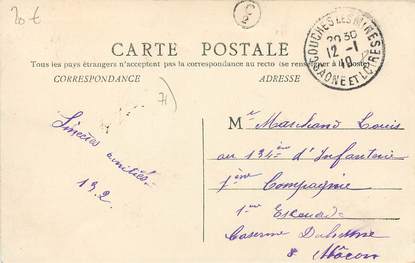 20 €
C
2
CARTE POSTALE
Tous les pays étrangers n'acceptent pas la correspondance au recto (se renseigner à la poste)
CORRESPONDANCE
ADRESSE
COUCHES LES MINES
20 30
12 - 1
10
SAONE ET LOIRE
71
Sincères amitiés
132
Mr Marchand Louis
au 134ème d'Infanterie
7ème Compagnie
1re Escouade
Caserne
à Mâcon